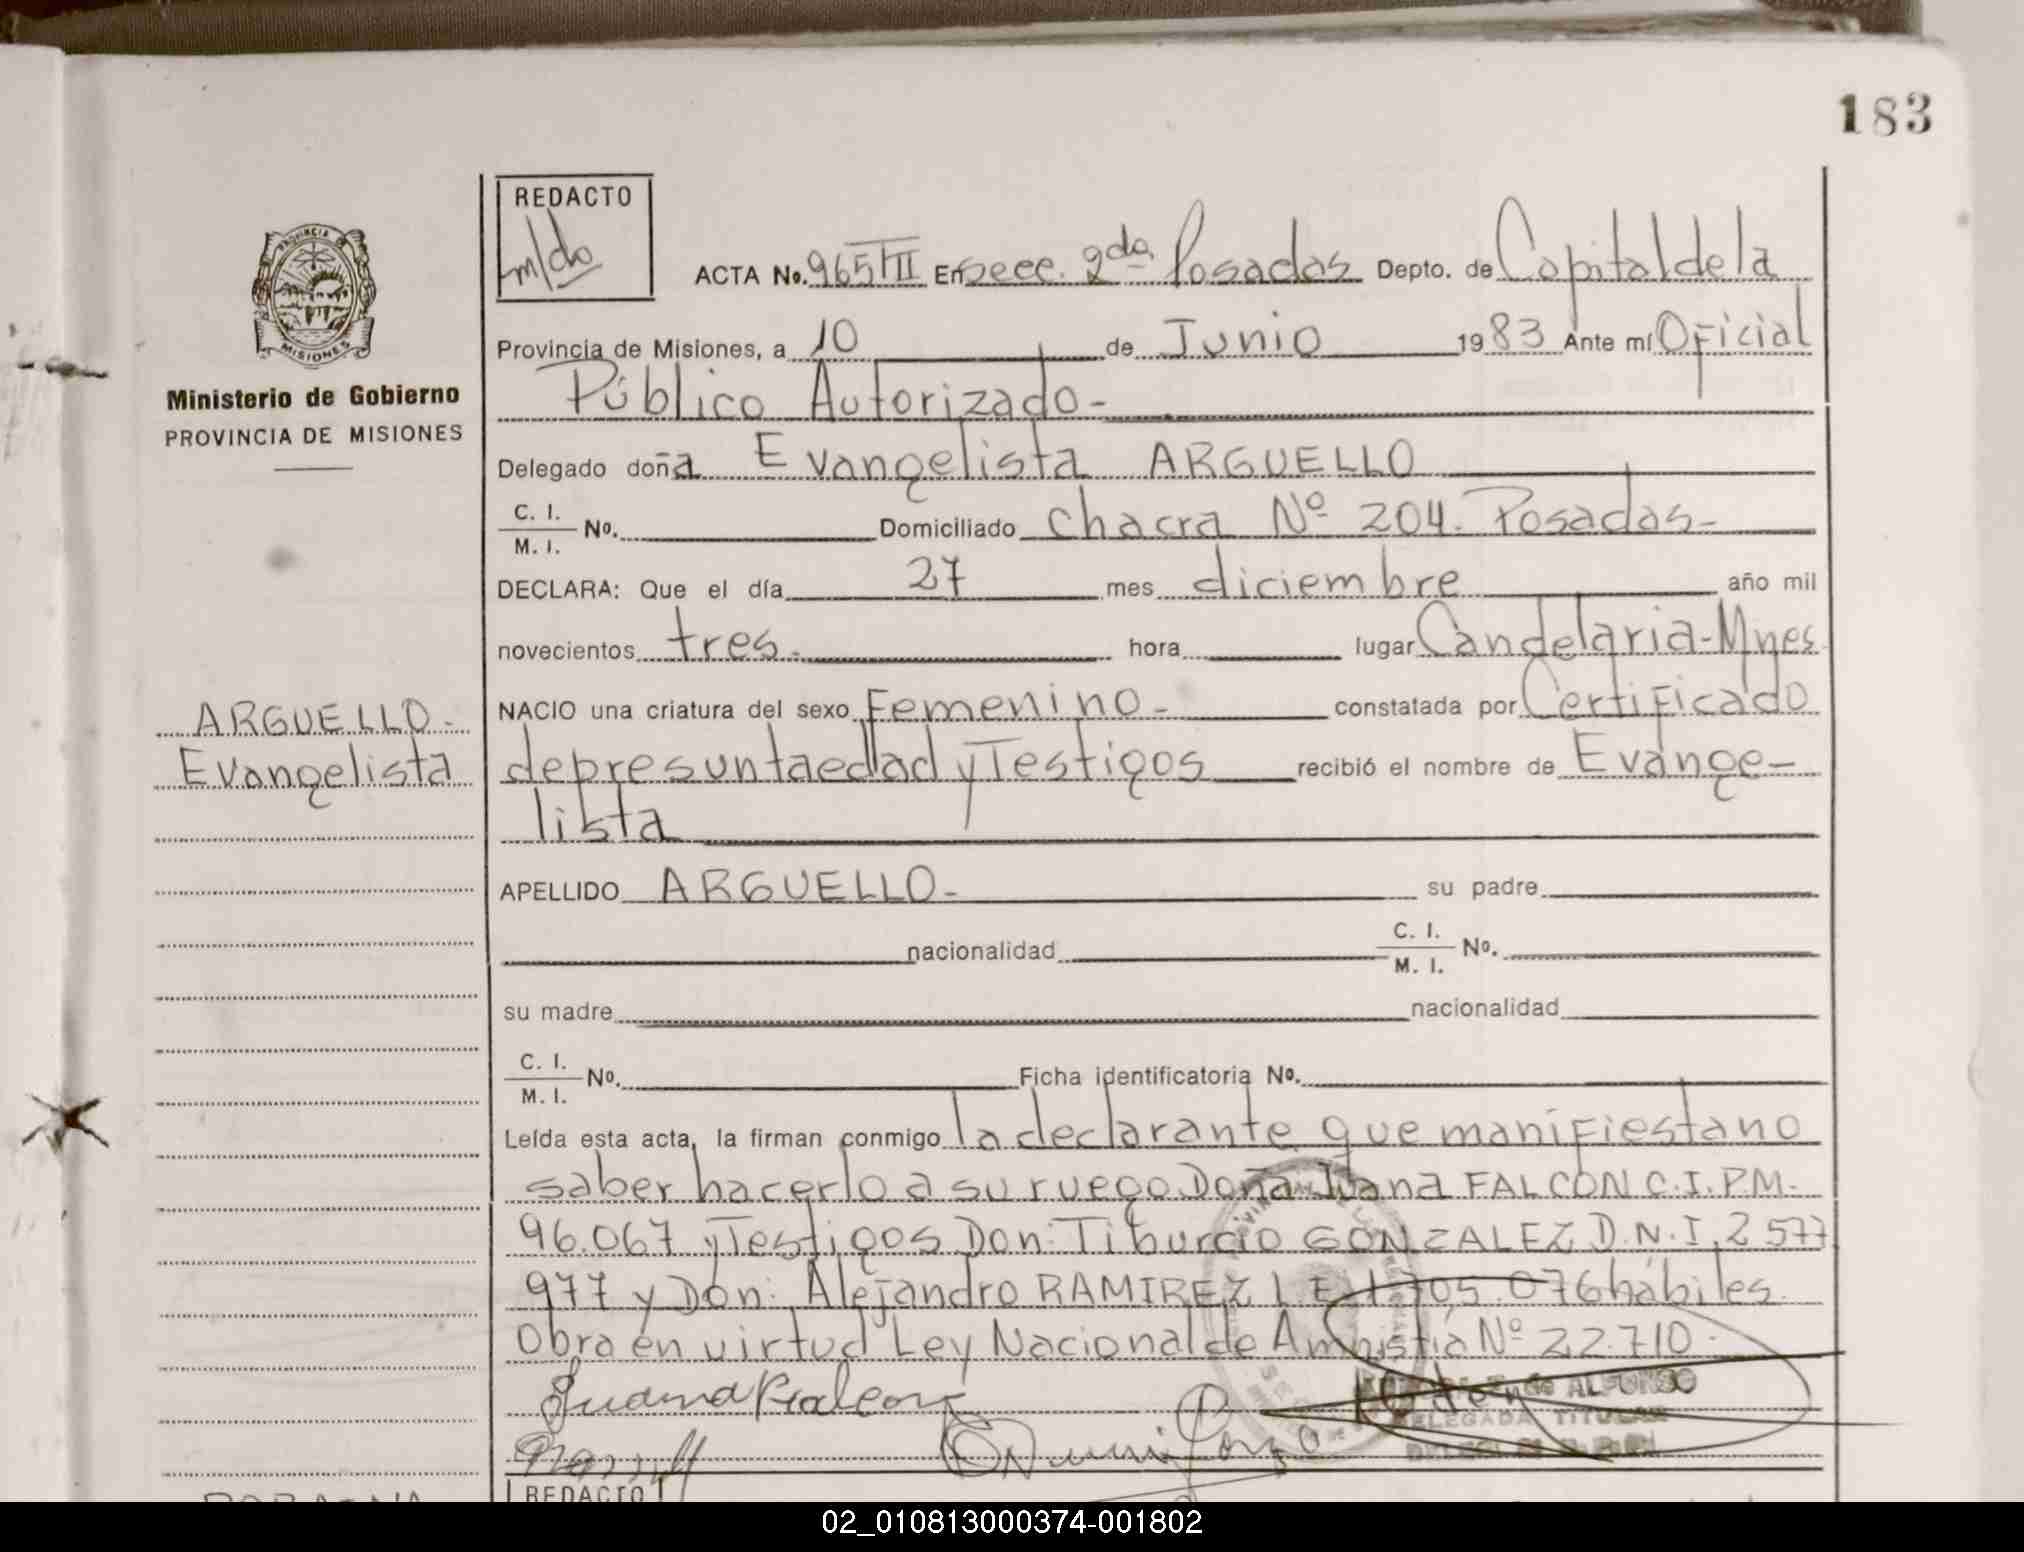 183
REDACTO
m/do
ACTA No. 965 TII En Secc. 2da. Posadas Depto. de Capital de la
PROVINCIA
MISIONES
Provincia de Misiones, a 10 de Junio 1983 Ante mí Oficial
Ministerio de Gobierno
PROVINCIA DE MISIONES
Público Autorizado-
Delegado doña Evangelista ARGUELLO
C. I.
M. I. No. Domiciliado Chacra Nº 204. Posadas-
DECLARA: Que el día 27 mes diciembre año mil
novecientos tres- hora lugar Candelaria-Mnes
ARGUELLO-
Evangelista
NACIO una criatura del sexo Femenino- constatada por Certificado
de presunta edad y Testigos recibió el nombre de Evange-
lista
APELLIDO ARGUELLO- su padre
nacionalidad C. I.
M. I. No.
su madre nacionalidad
C. I.
M. I. No. Ficha identificatoria No.
Leída esta acta, la firman conmigo la declarante que manifiesta no
saber hacerlo a su ruego Doña Juana FALCON C.I.P.M.
96.067 y Testigos Don: Tiburcio GONZALEZ D.N.I. 2 577
977 y Don: Alejandro RAMIREZ L.E. 1.705.076 hábiles.
Obra en virtud Ley Nacional de Amnistía Nº 22.710.
Juana Falcon
de ALFONSO
DELEGADA TITULAR
REDACTO
02_010813000374-001802